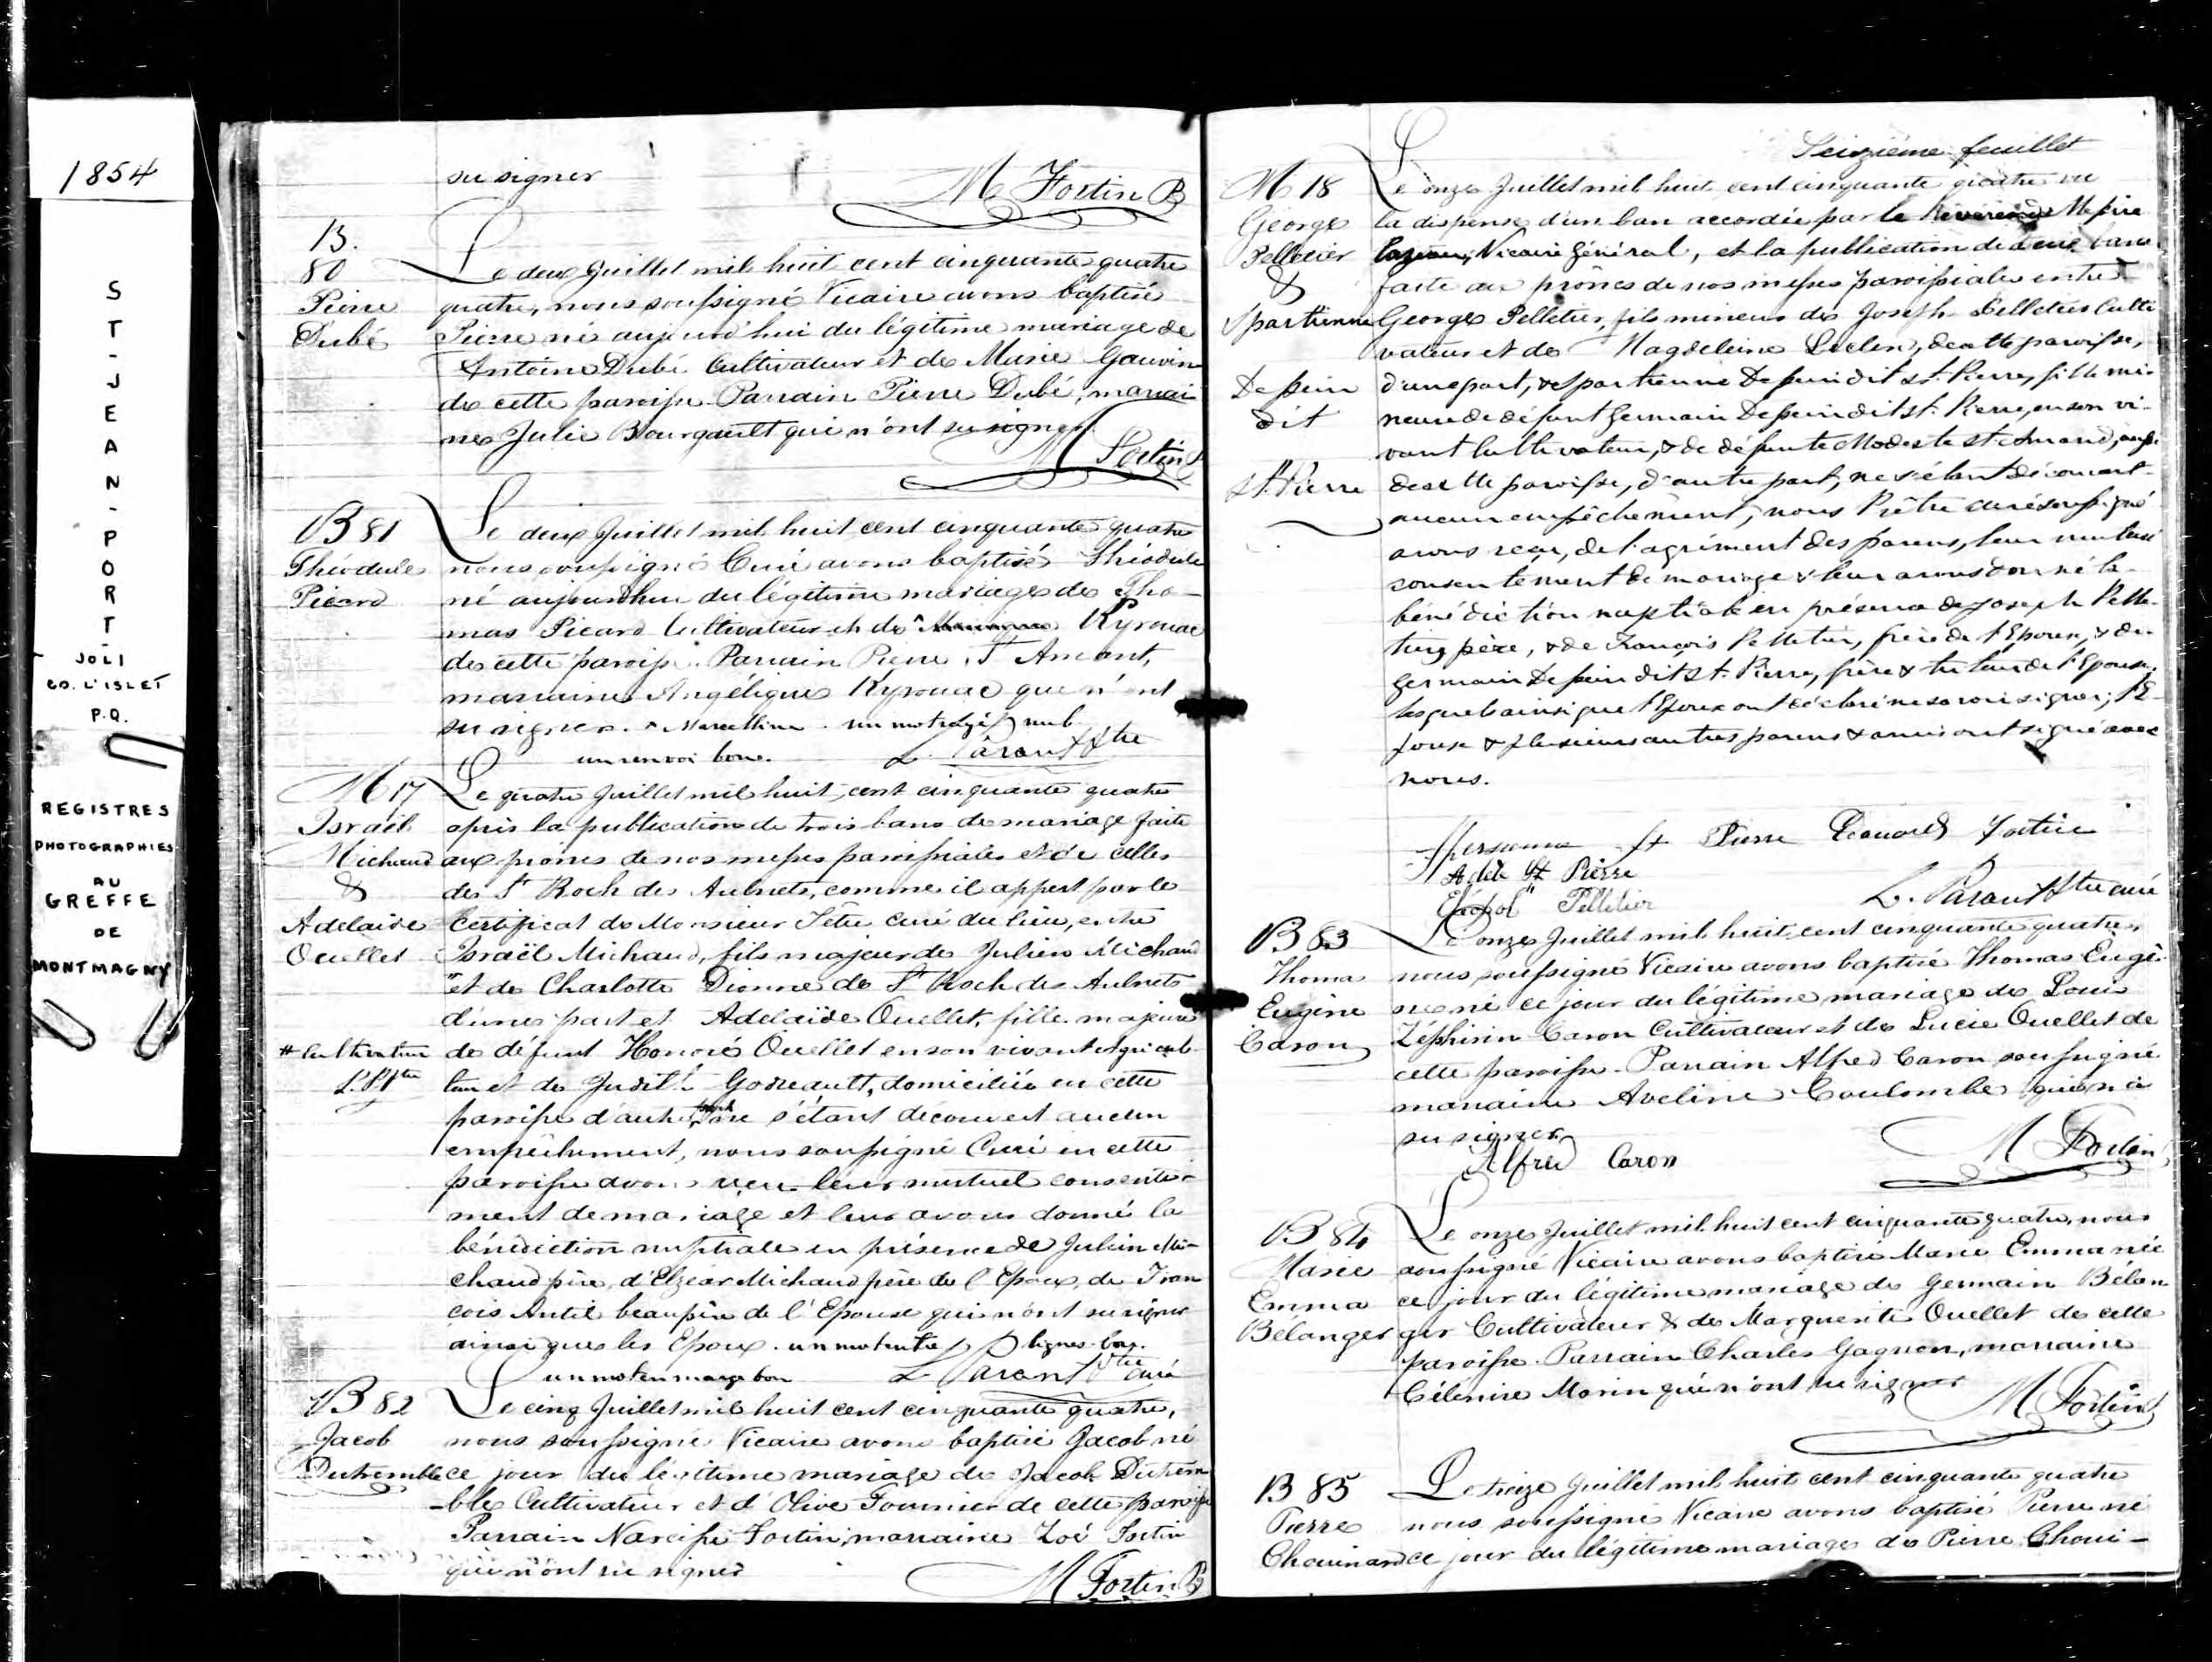 1854
ST-JEAN-PORT-
JOLI
CO. L'ISLET
P.Q.
REGISTRES
PHOTOGRAPHIES
AU
GREFFE
DE
MONTMAGNY
su signer
M Fortin
B.
80
Pierre
Dubé
Le deux Juillet mil huit cent cinquante quatre
quatre, nous soussigné Vicaire avons baptisé
Pierre né aujourd'hui du légitime mariage de
Antoine Dubé Cultivateur et de Marie Gauvin
de cette paroisse. Parrain Pierre Dubé, marrai
ne Julie Bourgault qui n'ont su signer.
M Fortin
B 81
Théodule
Picard
Le deux Juillet mil huit cent cinquante quatre
nous soussigné Curé avons baptisé Théodule
né aujourdhui du légitime mariage de Tho-
mas Picard Cultivateur et de Kyrouac
de cette paroisse. Parrain Pierre St Amant,
marraine Angélique Kyrouac qui n'ont
su signer. Marcelline. un mot rayé nul.
un renvoi bon. L. Parant Ptre
M 17
Israël
Michaud
&
Adelaide
Ouellet
# Cultivateur
L. P. Ptre
Le quatre Juillet mil huit cent cinquante quatre
après la publication de trois bans de mariage faite
aux prônes de nos messes paroissiales et de celles
de St Roch des Aulnets, comme il appert par le
Certificat de Monsieur Têtu, curé du lieu, entre
Israël Michaud, fils majeur de Julien Michaud
et de Charlotte Dionne de St Roch des Aulnets
d'une part et Adelaïde Ouellet, fille majeure
de défunt Honoré Ouellet en son vivant agricul-
teur et de Judith Godreault, domiciliée en cette
paroisse d'autre part ne s'étant découvert aucun
empêchement, nous soussigné Curé en cette
paroisse avons reçu leur mutuel consente-
ment de mariage et leur avons donné la
bénédiction nuptiale en présence de Julien Mi-
chaud père, d'Elzear Michaud frère de l'Epoux, de Fran
cois Antil beaupère de l'Epouse qui n'ont su signer
ainsi que les Epoux. un mot entre lignes bon.
un mot en marge bon L. Parant Ptre curé
B 82
Jacob
Dutremble
Le cinq Juillet mil huit cent cinquante quatre,
nous soussigné Vicaire avons baptisé Jacob né
ce jour du légitime mariage de Jacob Dutrem
-ble Cultivateur et d'Olive Fournier de cette paroisse
Parrain Narcisse Fortin, marraine Zoé Fortin
qui n'ont su signer
M Fortin
Seizième feuillet
M 18
George
Pelletier
&
Spartienne
Dessein
dit
St. Pierre
Le onze Juillet mil huit cent cinquante quatre vu
la dispense d'un ban accordée par le Révérend Messire
Cazeau, Vicaire Général, et la publication de deux bans
faite aux prônes de nos messes paroissiales entre
George Pelletier, fils mineur de Joseph Pelletier Culti
vateur et de Magdeleine Leclerc, de cette paroisse,
d'une part, & Spartienne Dessein dit St. Pierre, fille mi-
neure de défunt Germain Dessein dit St. Pierre, en son vi-
vant Cultivateur, & de défunte Modeste St. Amand, aussi
de cette paroisse, d'autre part, ne s'étant découvert
aucun empêchement, nous Prêtre curé soussigné
avons reçu, de l'agrément des parens, leur mutuel
consentement de mariage & leur avons donné la
bénédiction nuptiale en présence de Joseph Pelle-
tier, père, & de François Pelletier, frère de l'Epoux, & de
Germain Dessein dit St. Pierre, frère & tuteur de l'Epouse,
lesquels ainsi que l'Epoux ont déclaré ne savoir signer; l'E-
pouse & plusieurs autres parens & amis ont signé avec
nous.
St Pierre Edouard Fortin
Adèle St Pierre
Léopol Pelletier
L. Parant Ptre curé
B 83
Thoma
Eugène
Caron
Le onze Juillet mil huit cent cinquante quatre,
nous soussigné Vicaire avons baptisé Thomas Eugè-
ne né ce jour du légitime mariage de Louis
Zéphirin Caron Cultivateur et de Lucie Ouellet de
cette paroisse. Parrain Alfred Caron soussigné
marraine Aveline Coulombe qui n'a
su signer.
Alfred Caron
M Fortin
B 84
Marie
Emma
Bélanger
Le onze Juillet mil huit cent cinquante quatre, nous
soussigné Vicaire avons baptisé Marie Emma née
ce jour du légitime mariage de Germain Bélan
ger Cultivateur & de Marguerite Ouellet de cette
paroisse. Parrain Charles Gagnon, marraine
Célenire Morin qui n'ont su signer
M Fortin
B 85
Pierre
Chouinard
Le treize Juillet mil huit cent cinquante quatre
nous soussigné Vicaire avons baptisé Pierre né
ce jour du légitime mariage de Pierre Choui-